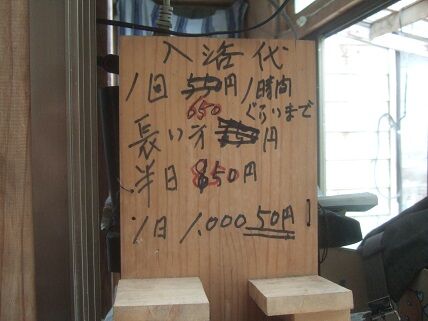 入浴代
1回 550円 1時間
650 ぐらいまで
長い方 円
半日 850円
1日 1,000 50円